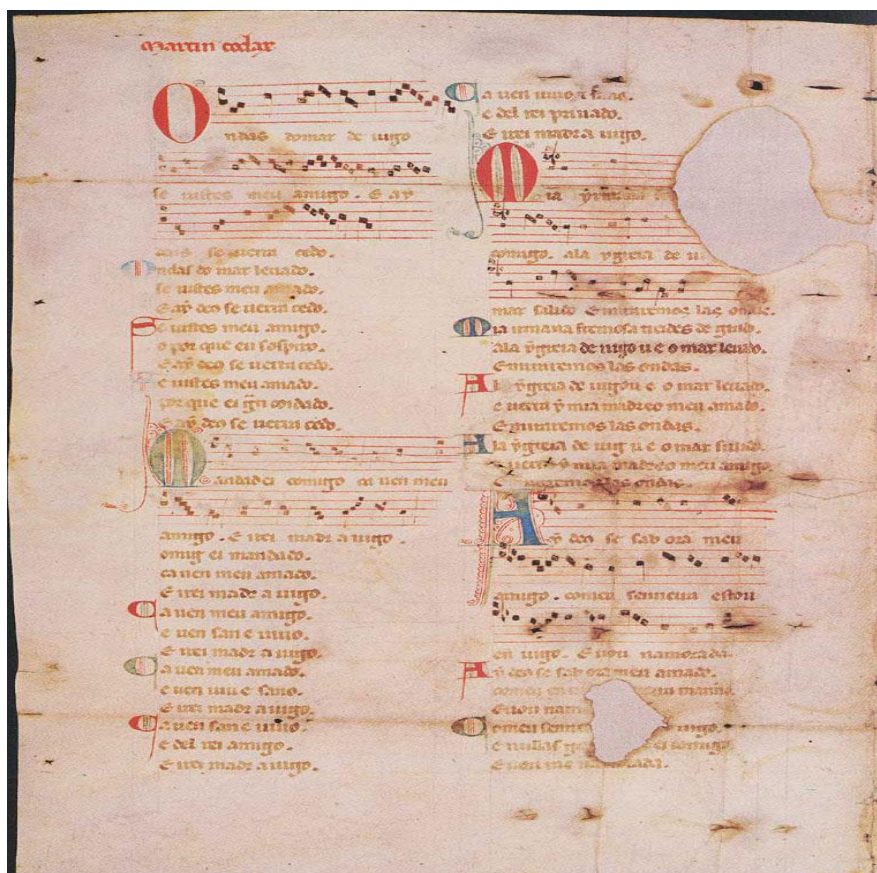 Martin codax
Ondas do mar de uigo
se uistes meu amigo. E ay
deus se uerra cedo.
Ondas do mar leuado.
se uistes meu amado.
E ay deus se uerra cedo.
Se uistes meu amigo.
o por que eu sospiro.
E ay deus se uerra cedo.
Se uistes meu amado.
por que ei gran coidado.
E ay deus se uerra cedo.
Mandadei comigo ca uen meu
amigo. E irei madr a uigo.
Comigo ei mandado.
ca uen meu amado.
E irei madr a uigo.
Ca uen meu amigo.
e uen san e uiuo.
E irei madr a uigo.
Ca uen meu amado.
e uen uiu e sano.
E irei madr a uigo.
Ca uen san e uiuo.
e del rei amigo.
E irei madr a uigo.
Ca uen uiuo e sano.
e del rei priuado.
E irei madr a uigo.
Mia yrmana
comigo. ala ygreia de
mar salido E miraremos las ondas.
Mia irmana fremosa treides de grado.
ala ygreia de uigo u e o mar leuado.
E miraremos las ondas.
Ala ygreia de uigo u e o mar leuado.
e uerra y mia madre o meu amado.
E miraremos las ondas.
Ala ygreia de uigo u e o mar salido.
e uerra y mia madre o meu amigo.
E miraremos las ondas.
Ay deus se sab ora meu
amigo. comeu senneira estou
en uigo. E uou namorada
Ay deus se sab ora meu amado.
comeu en manno.
E uou
comeu senne uigo.
e nullas comigo.
E uou namorada.